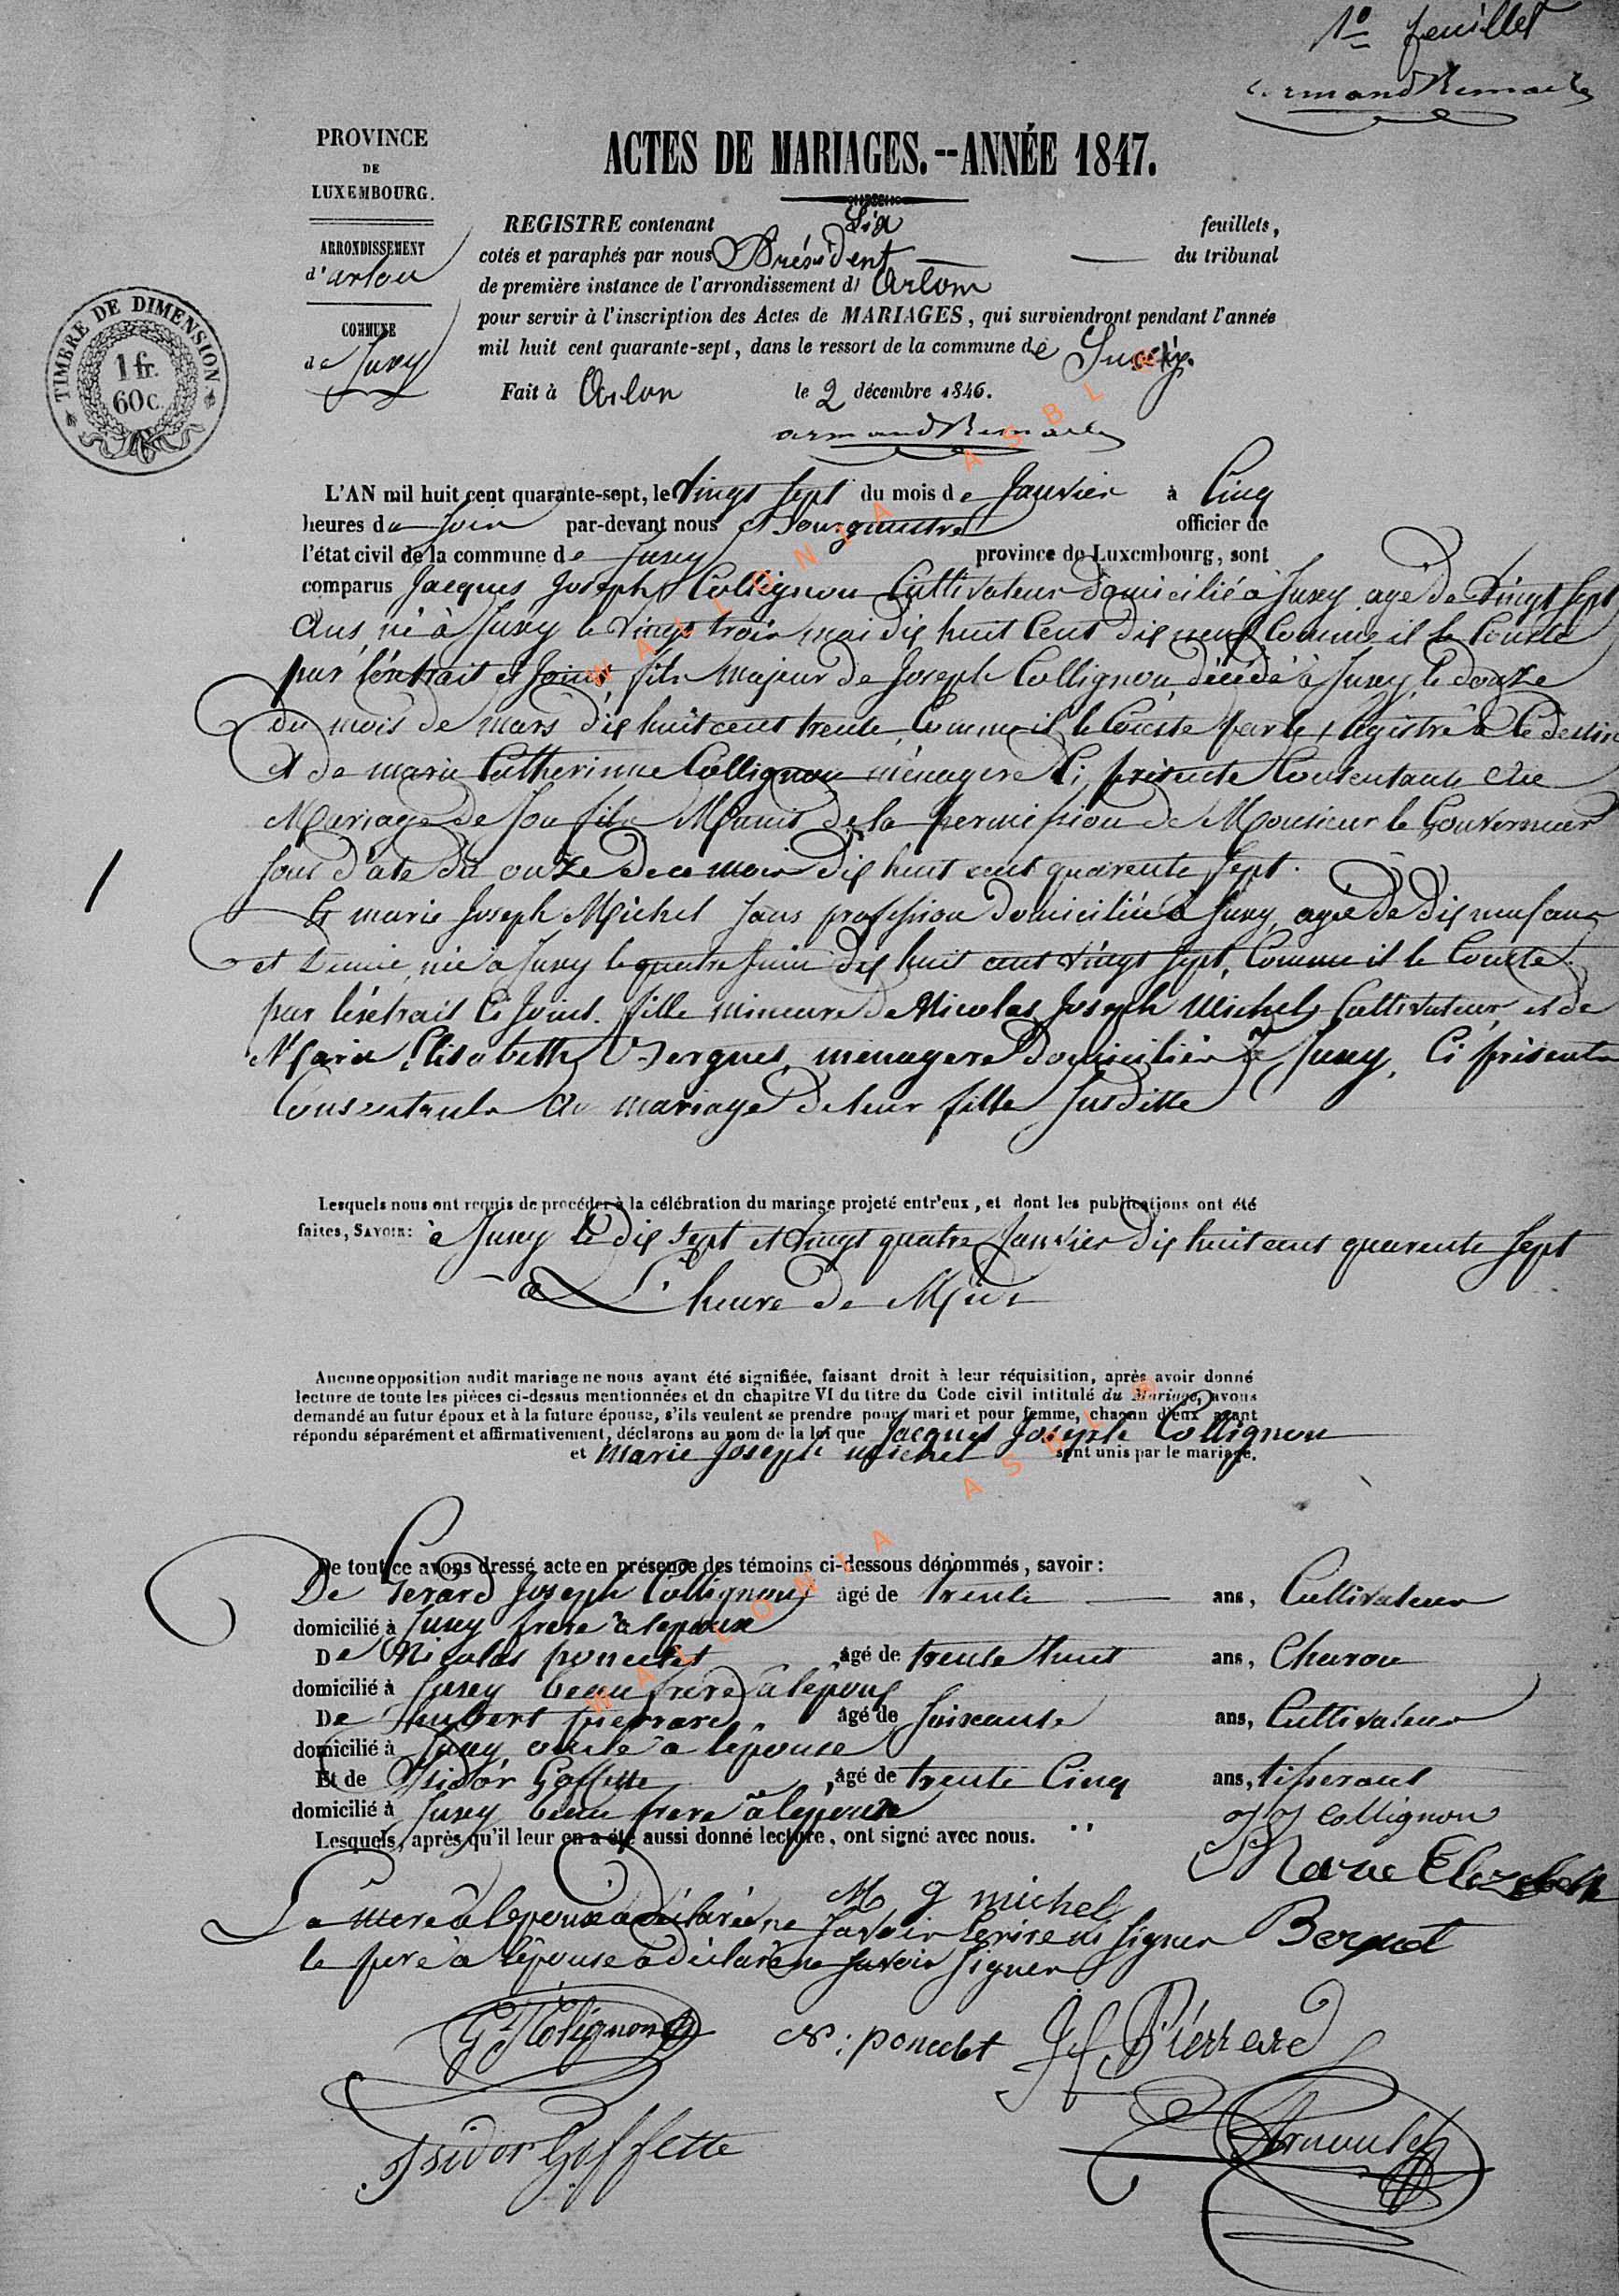 1º feuillet
PROVINCE
DE
LUXEMBOURG.
ARRONDISSEMENT
d'arlon
COMMUNE
de Jusey
TIMBRE DE DIMENSION
1 fr.
60 c.
ACTES DE MARIAGES.--ANNÉE 1847.
REGISTRE contenant Six feuillets,
cotés et paraphés par nous Président du tribunal
de première instance de l'arrondissement d' Arlon
pour servir à l'inscription des Actes de MARIAGES, qui surviendront pendant l'année
mil huit cent quarante-sept, dans le ressort de la commune de
Fait à Arlon le 2 décembre 1846.
L'AN mil huit cent quarante-sept, le Vingt Sept du mois de Janvier à Cinq
heures du Soir par-devant nous Bourgmestre officier de
l'état civil de la commune de Jusey province de Luxembourg, sont
comparus Jacques Joseph Collignon Cultivateur domicilié à Jusey, agé de Vingt Sept
Ans, né à Jusey le Vingt trois mai dix huit Cent dix neuf, Comme il le Conste
par l'extrait ci Joint, fils Majeur de Joseph Collignon, décédé à Jusey, le douze
du mois de mars dix huit cent trente, Comme il le Conste par le registre à
et de marie Catherinne Collignon ménagere Ci présente Consentante au
Mariage de Son fils Munis de la permission de Monsieur le Gouverneur
Sous date du onze de ce mois dix huit cent quarente Sept.
Et marie Joseph Michel Sans profession domiciliée à Jusey, agée de dix neuf ans
et Demie, née à Jusey le quatre Juin dix huit cent Vingt Sept, Comme il le Conste
par l'extrait Ci Joint. fille mineure de Nicolas Joseph Michel Cultivateur et de
Marie Elisabeth Berguet menagere domiciliés à Jusey, Ci présents
Consentants au mariage de leur fille Susditte
Lesquels nous ont requis de procéder à la célébration du mariage projeté entr'eux, et dont les publications ont été
faites, SAVOIR: à Jusey le dix Sept et Vingt quatre Janvier dix huit cent quarente Sept
à L'heure de Midi
Aucune opposition audit mariage ne nous ayant été signifiée, faisant droit à leur réquisition, après avoir donné
lecture de toute les pièces ci-dessus mentionnées et du chapitre VI du titre du Code civil intitulé du Mariage, avons
demandé au futur époux et à la future épouse, s'ils veulent se prendre pour mari et pour femme, chacun d'eux ayant
répondu séparément et affirmativement, déclarons au nom de la loi que Jacques Joseph Collignon
et Marie Joseph michel sont unis par le mariage.
De tout ce avons dressé acte en présence des témoins ci-dessous dénommés, savoir:
De Gerard Joseph Collignon âgé de trente ans, Cultivateur
domicilié à Jusey frere à lepoux
De Nicolas poncelet âgé de trente huit ans, Charon
domicilié à Jusey beau frere à lépoux
De hubert pierrard âgé de Soixante ans, Cultivateur
domicilié à Jusey, oncle à lépouse
Et de Isidor Goffette âgé de trente Cinq ans, tisserant
domicilié à Jusey beau frere à lépouse
Lesquels, après qu'il leur en a été aussi donné lecture, ont signé avec nous.
J J Collignon
Marie Elizabeth
M J michel
La mere à lepoux a déclaré ne Savoir Ecrire ni Signer Berguet
le pere à lépouse a déclaré ne Savoir Signer
G J Colignon
N: poncelet
H Pierrard
Isidor Goffette
Arnould
WALLONIA ASBL ®
WALLONIA ASBL ®